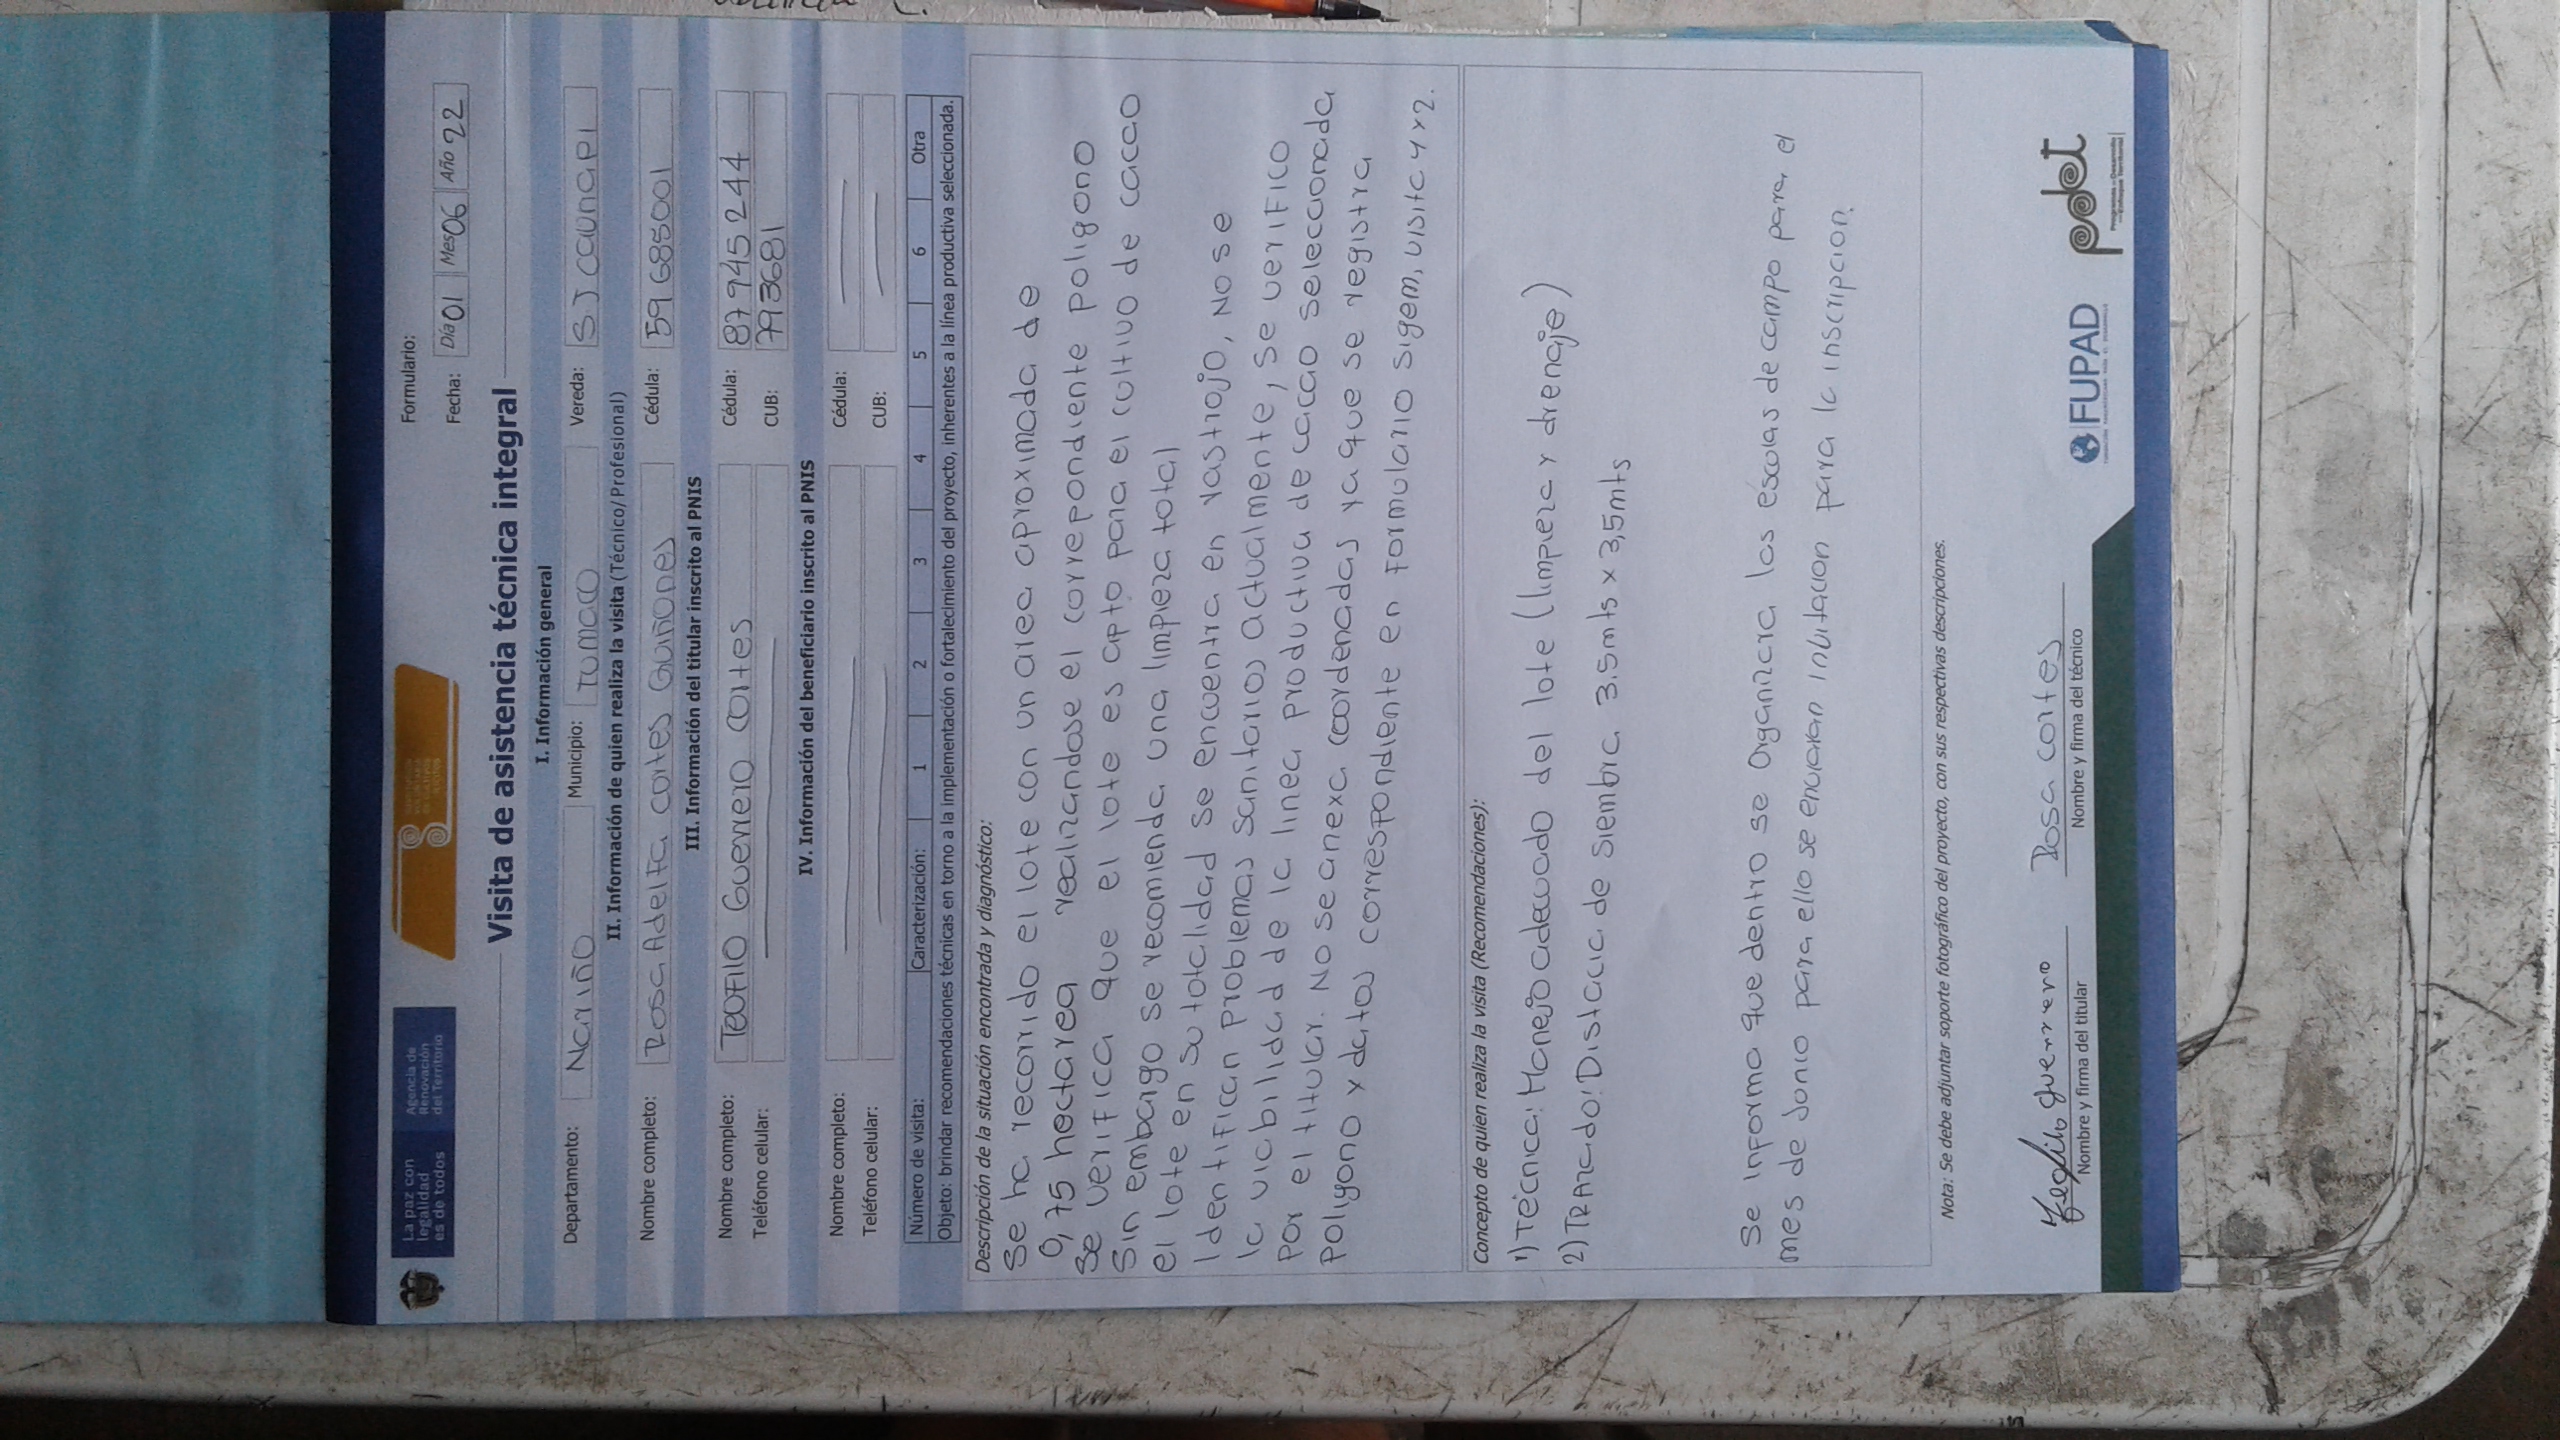 La paz con
legalidad
es de todos
Agencia de
Renovación
del Territorio
Formulario:
Fecha: Día 01 Mes 06 Año 22
Visita de asistencia técnica integral
I. Información general
Departamento: Nariño Municipio: Tumaco Vereda: SJ caunapi
II. Información de quien realiza la visita (Técnico/Profesional)
Nombre completo: Rosa Adelfa cortes Quiñones Cédula: 59 685001
III. Información del titular inscrito al PNIS
Nombre completo: Teofilo Guerrero cortes Cédula: 87 945 244
Teléfono celular: CUB: 793681
IV. Información del beneficiario inscrito al PNIS
Nombre completo: Cédula:
Teléfono celular: CUB:
Número de visita: Caracterización: 1 2 3 4 5 6 Otra
Objeto: brindar recomendaciones técnicas en torno a la implementación o fortalecimiento del proyecto, inherentes a la línea productiva seleccionada.
Descripción de la situación encontrada y diagnóstico:
Se ha recorrido el lote con un area aproximada de
0,75 hectarea realizandose el correpondiente poligono
Se verifica que el lote es apto para el cultivo de cacao
Sin embargo se recomienda una limpieza total
el lote en su totalidad se encuentra en rastrojo, No se
Identifican problemas sanitarios actualmente, se verifico
la viabilidad de la linea productiva de cacao seleccionada
Por el titular. No se anexa coordenadas ya que se registra
Polygono y datos correspondiente en formulario sigem, visita 1 y 2.
Concepto de quien realiza la visita (Recomendaciones):
1) Técnica: Manejo adecuado del lote (limpieza y drenaje)
2) TRAzado: Distacia de siembra 3.5mts x 3,5mts
Se Informa que dentro se Organizara las escolas de campo para el
mes de Junio para ello se enviaran invitacion para la inscripcion.
Nota: Se debe adjuntar soporte fotográfico del proyecto, con sus respectivas descripciones.
Teofilo guerrero Rosa cortes
Nombre y firma del titular Nombre y firma del técnico
FUPAD
pdet
Programas de Desarrollo
con Enfoque Territorial